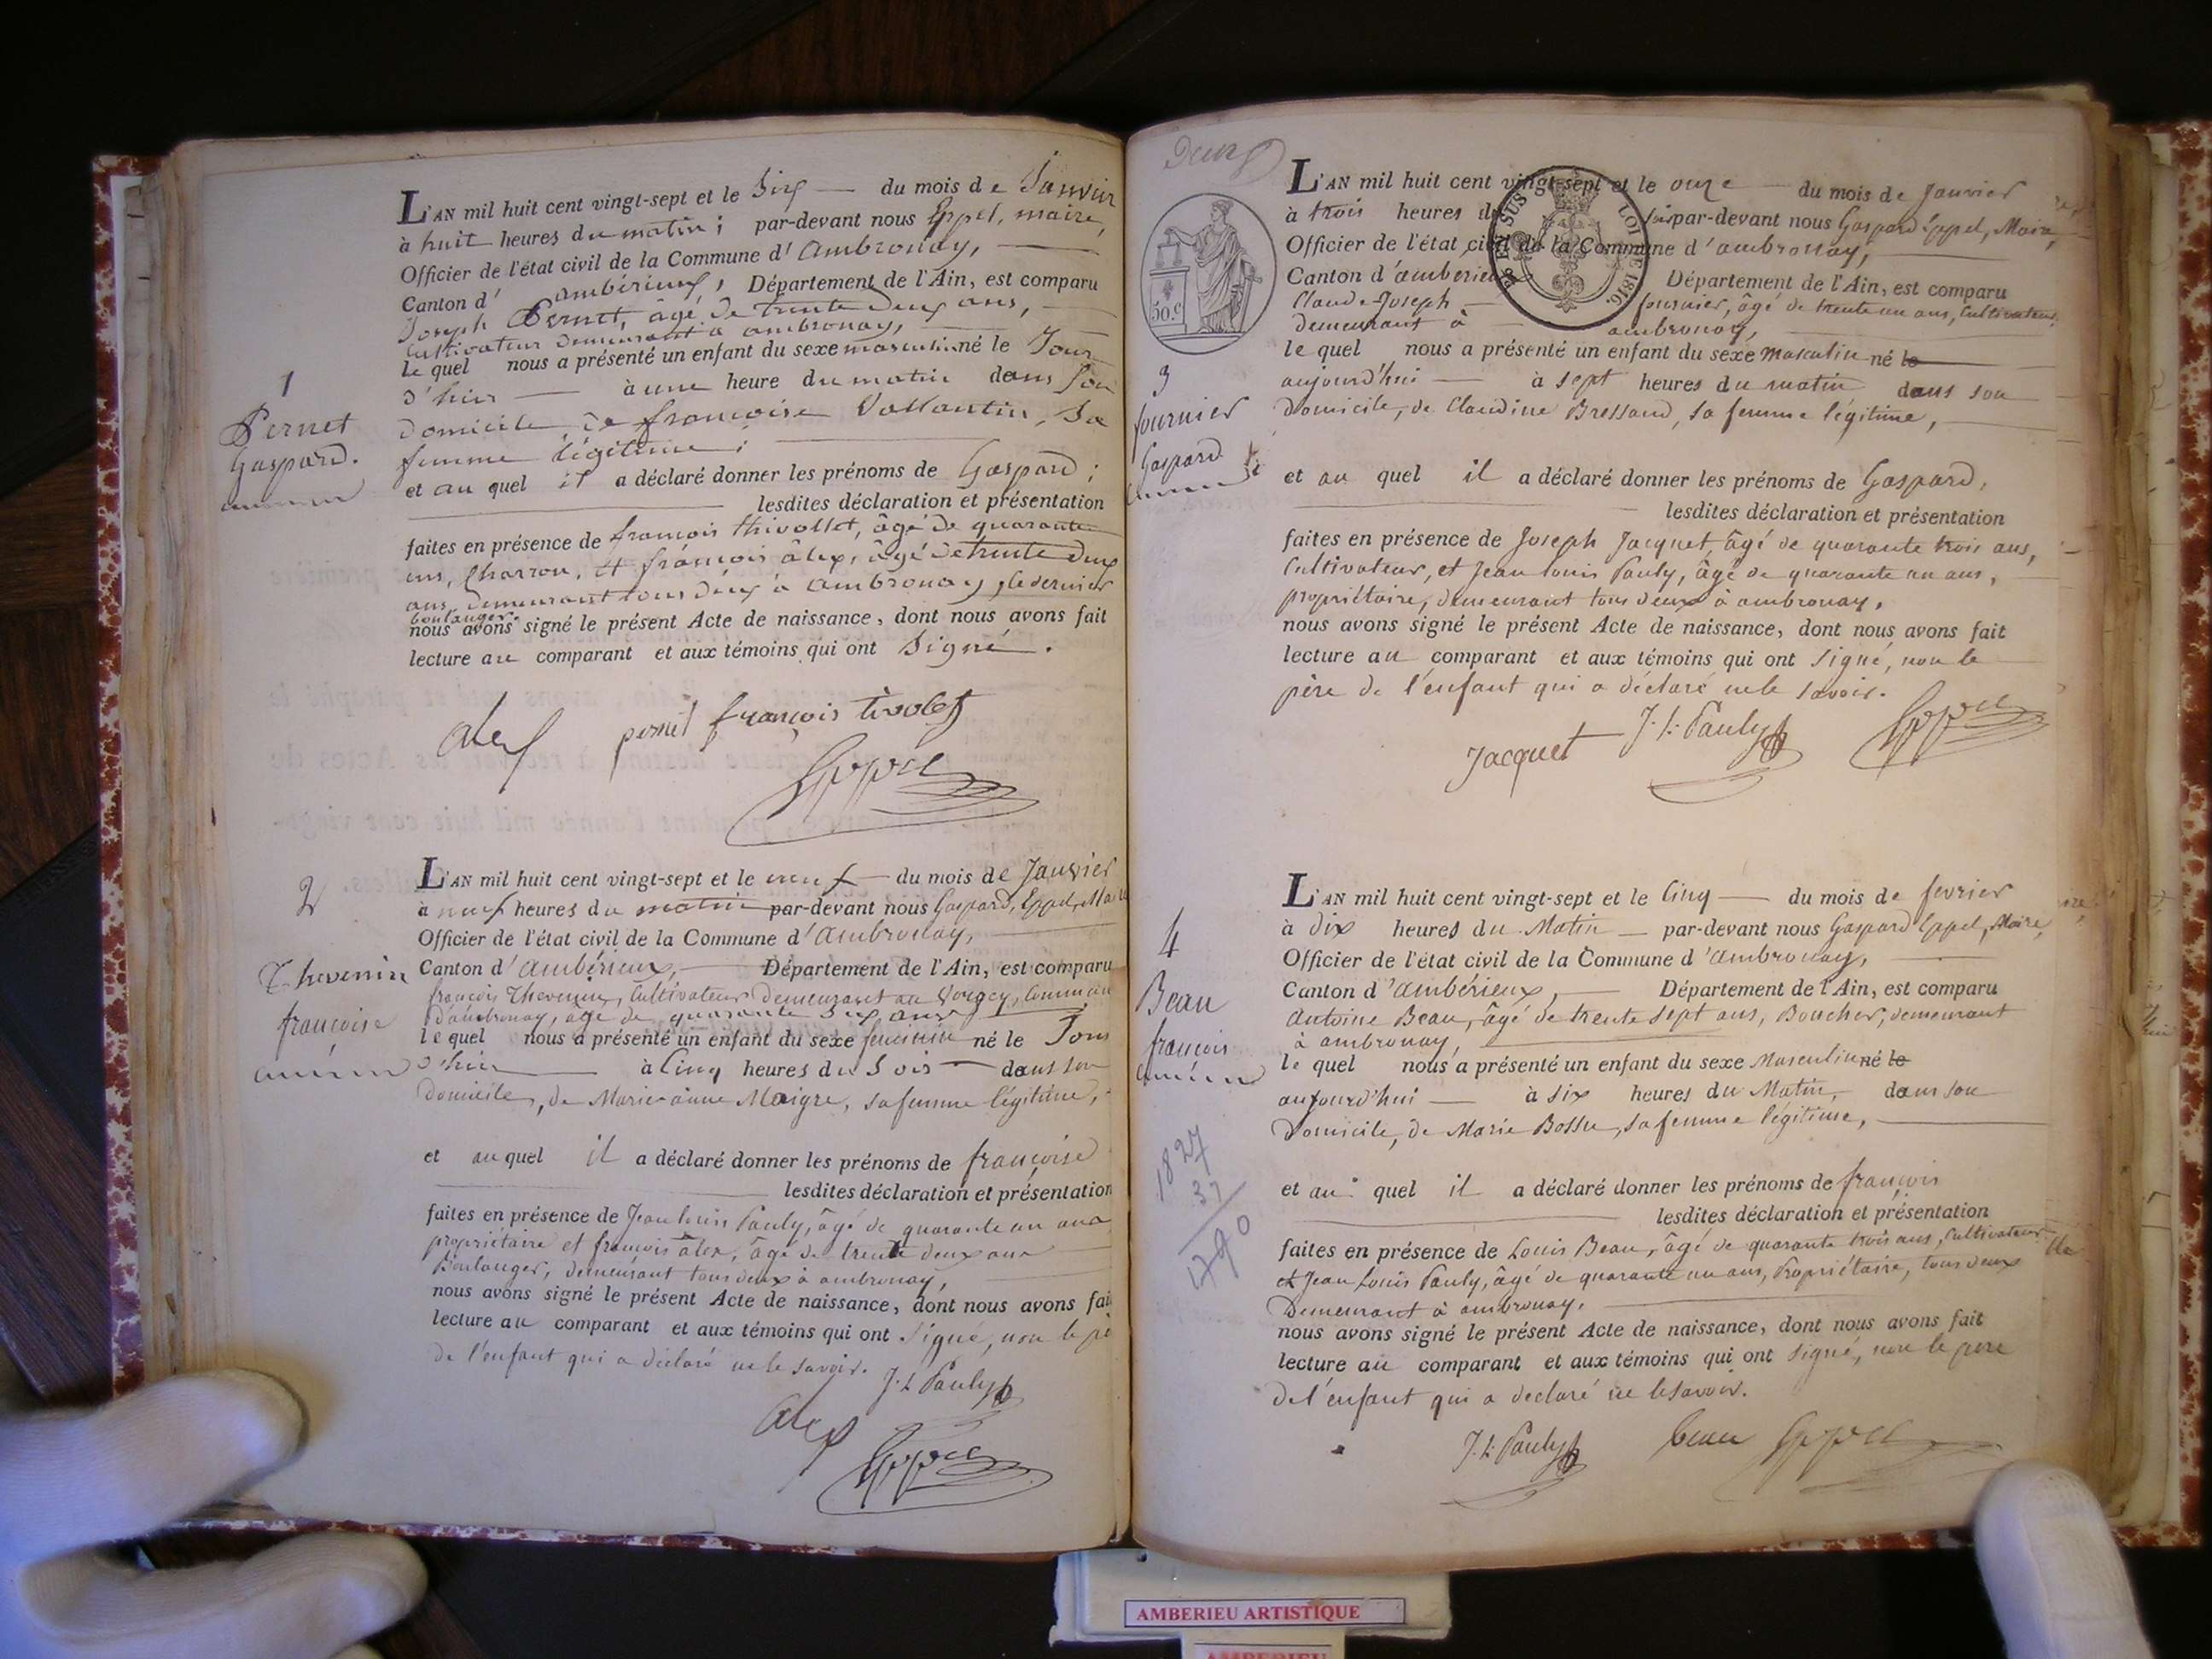 1
Pernet
Gaspard.
L'AN mil huit cent vingt-sept et le Six — du mois de Janvier
à huit heures du matin ; par-devant nous Eppel, maire,
Officier de l'état civil de la Commune d'Ambronay,
Canton d'ambérieux, Département de l'Ain, est comparu
Joseph Pernet, âgé de trente deux ans,
Cultivateur demeurant à ambronay,
le quel nous a présenté un enfant du sexe masculin né le Jour
d'hier — à une heure du matin dans son
domicile de françoise Vallantin, Sa
femme légitime ;
et au quel il a déclaré donner les prénoms de Gaspard ;
lesdites déclaration et présentation
faites en présence de françois thivollet, âgé de quarante
ans, Charron, et françois âlex, âgé de trente deux
ans, demeurant tous deux à ambronay, le dernier
boulanger.
nous avons signé le présent Acte de naissance, dont nous avons fait
lecture au comparant et aux témoins qui ont Signé.
alex pernet françois tivolet
Eppel
2
Thevenin
françoise
L'AN mil huit cent vingt-sept et le neuf — du mois de Janvier
à neuf heures du matin par-devant nous Gaspard, Eppel, Maire
Officier de l'état civil de la Commune d'Ambronay,
Canton d'Ambérieux, — Département de l'Ain, est comparu
françois Thevenin, Cultivateur demeurant au Vorgey, Commune
d'ambronay, âgé de quarante Six ans,
le quel nous a présenté un enfant du sexe feminin né le Jour
d'hier — à Cinq heures du Soir — dans son
domicile, de Marie-anne Maigre, sa femme légitime,
et au quel il a déclaré donner les prénoms de françoise
lesdites déclaration et présentation
faites en présence de Jean louis Pauly, âgé de quarante un ans
propriétaire et françois âlex, âgé de trente deux ans
Boulanger, demeurant tous deux à ambronay,
nous avons signé le présent Acte de naissance, dont nous avons fai
lecture au comparant et aux témoins qui ont Signé, non le pè
de l'enfant qui a déclaré ne le savoir. J. L Pauly
alex
Eppel
Deux
50.c
EN SUS
LOI DE 1816.
3
fournier
Gaspard
L'AN mil huit cent vingt-sept et le onze — du mois de Janvier
à trois heures du soir par-devant nous Gaspard Eppel, Maire,
Officier de l'état civil de la Commune d'ambronay,
Canton d'amberieux Département de l'Ain, est comparu
Claude-Joseph — fournier, âgé de trente un ans, Cultivateur,
demeurant à — ambronay,
le quel nous a présenté un enfant du sexe masculin né le
aujourd'hui — à sept heures du matin dans son
domicile, de Claudine Bressand, sa femme légitime,
et au quel il a déclaré donner les prénoms de Gaspard,
lesdites déclaration et présentation
faites en présence de Joseph Jacquet, âgé de quarante trois ans,
Cultivateur, et Jean louis Pauly, âgé de quarante un ans,
propriétaire, demeurant tous deux à ambronay,
nous avons signé le présent Acte de naissance, dont nous avons fait
lecture au comparant et aux témoins qui ont signé, non le
père de l'enfant qui a déclaré ne le savoir.
Jacquet J. L. Pauly Eppel
4
Beau
françois
L'AN mil huit cent vingt-sept et le Cinq — du mois de fevrier
à dix heures du Matin — par-devant nous Gaspard Eppel, Maire,
Officier de l'état civil de la Commune d'Ambronay,
Canton d'ambérieux, — Département de l'Ain, est comparu
Antoine Beau, âgé de trente sept ans, Boucher, demeurant
à ambronay,
le quel nous a présenté un enfant du sexe Masculin né le
aujourd'hui — à six heures du Matin, dans son
domicile, de Marie Bossu, sa femme légitime,
et au quel il a déclaré donner les prénoms de françois
lesdites déclaration et présentation
faites en présence de Louis Beau, âgé de quarante trois ans, Cultivateur
et Jean Louis Pauly, âgé de quarante un ans, Propriétaire, tous deux
Demeurant à ambronay.
nous avons signé le présent Acte de naissance, dont nous avons fait
lecture au comparant et aux témoins qui ont signé, non le pere
de l'enfant qui a declaré ne le savoir.
J. L. Pauly beau Eppel
1827
37
1790
AMBERIEU ARTISTIQUE
AMBERIEU